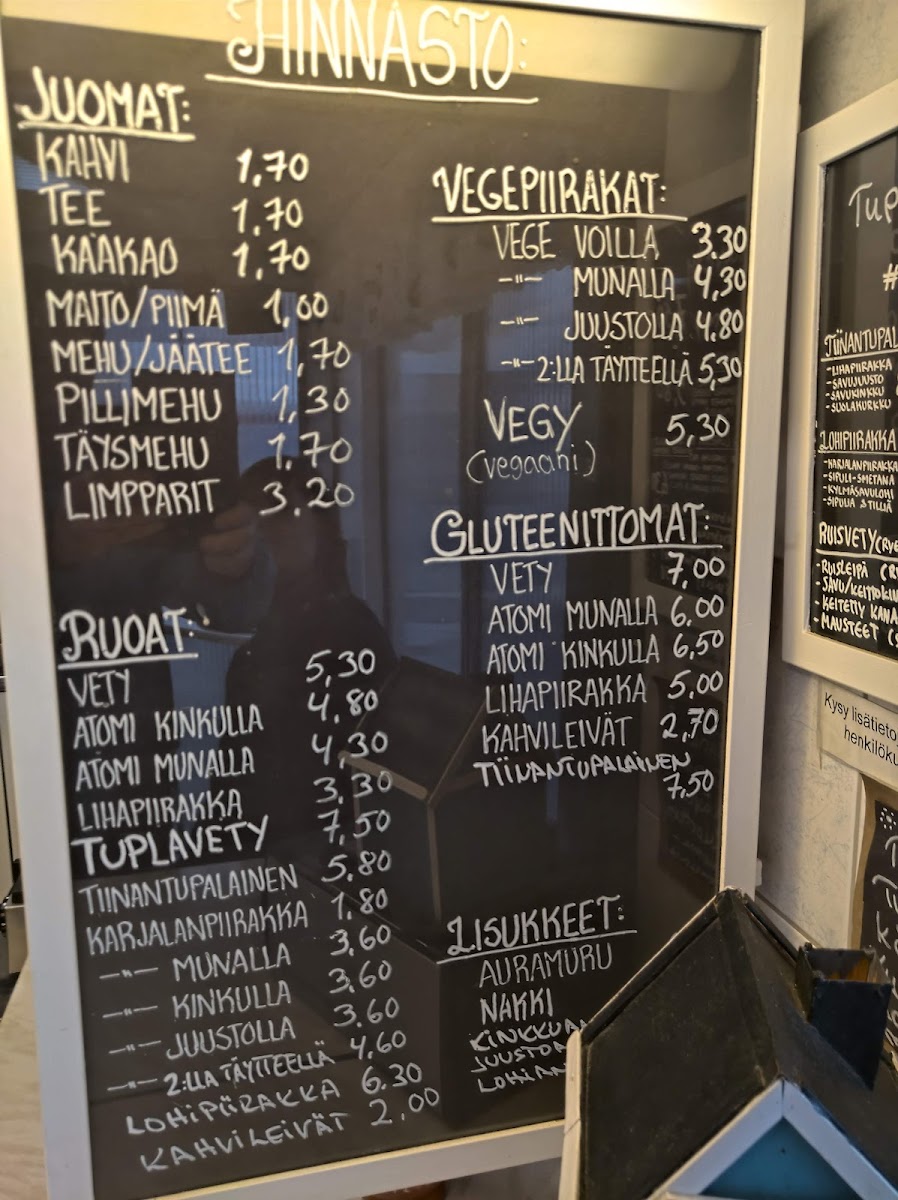 HINNASTO:
JUOMAT:
KAHVI 1,70
TEE 1,70
KAAKAO 1,70
MAITO/PIIMÄ 1,00
MEHU/JÄÄTEE 1,70
PILLIMEHU 1,30
TÄYSMEHU 1,70
LIMPPARIT 3.20
RUOAT:
VETY 5,30
ATOMI KINKULLA 4,80
ATOMI MUNALLA 4,30
LIHAPIIRAKKA 3,30
TUPLAVETY 7,50
TIINANTUPALAINEN 5,80
KARJALANPIIRAKKA 1,80
-"- MUNALLA 3,60
-"- KINKULLA 3,60
-"- JUUSTOLLA 3,60
-"- 2:LLA TÄYTTEELLÄ 4,60
LOHIPIIRAKKA 6.30
KAHVILEIVÄT 2,00
VEGEPIIRAKAT:
VEGE VOILLA 3,30
-"- MUNALLA 4,30
-"- JUUSTOLLA 4,80
-"- 2:LLA TÄYTTEELLÄ 5,30
VEGY 5,30
(vegaani)
GLUTEENITTOMAT:
VETY 7,00
ATOMI MUNALLA 6,00
ATOMI KINKULLA 6,50
LIHAPIIRAKKA 5,00
KAHVILEIVÄT 2,70
TIINANTUPALAINEN
7,50
LISUKKEET:
AURAMURU
NAKKI
TIINANTUPAL
-LIHAPIIRAKKA
-SAVUJUUSTO
-SAVUKINKKU
-SUOLAKURKKU
LOHIPIIRAKKA
-KARJALANPIIRAKKA
-SIPULI-SMETANA
-KYLMÄSAVULOHI
-SIPULIA & TILLIÄ
RUISVETY
-RUISLEIPÄ
-KEITETTY KANA
-MAUSTEET
Kysy lisätieto
henkilöku